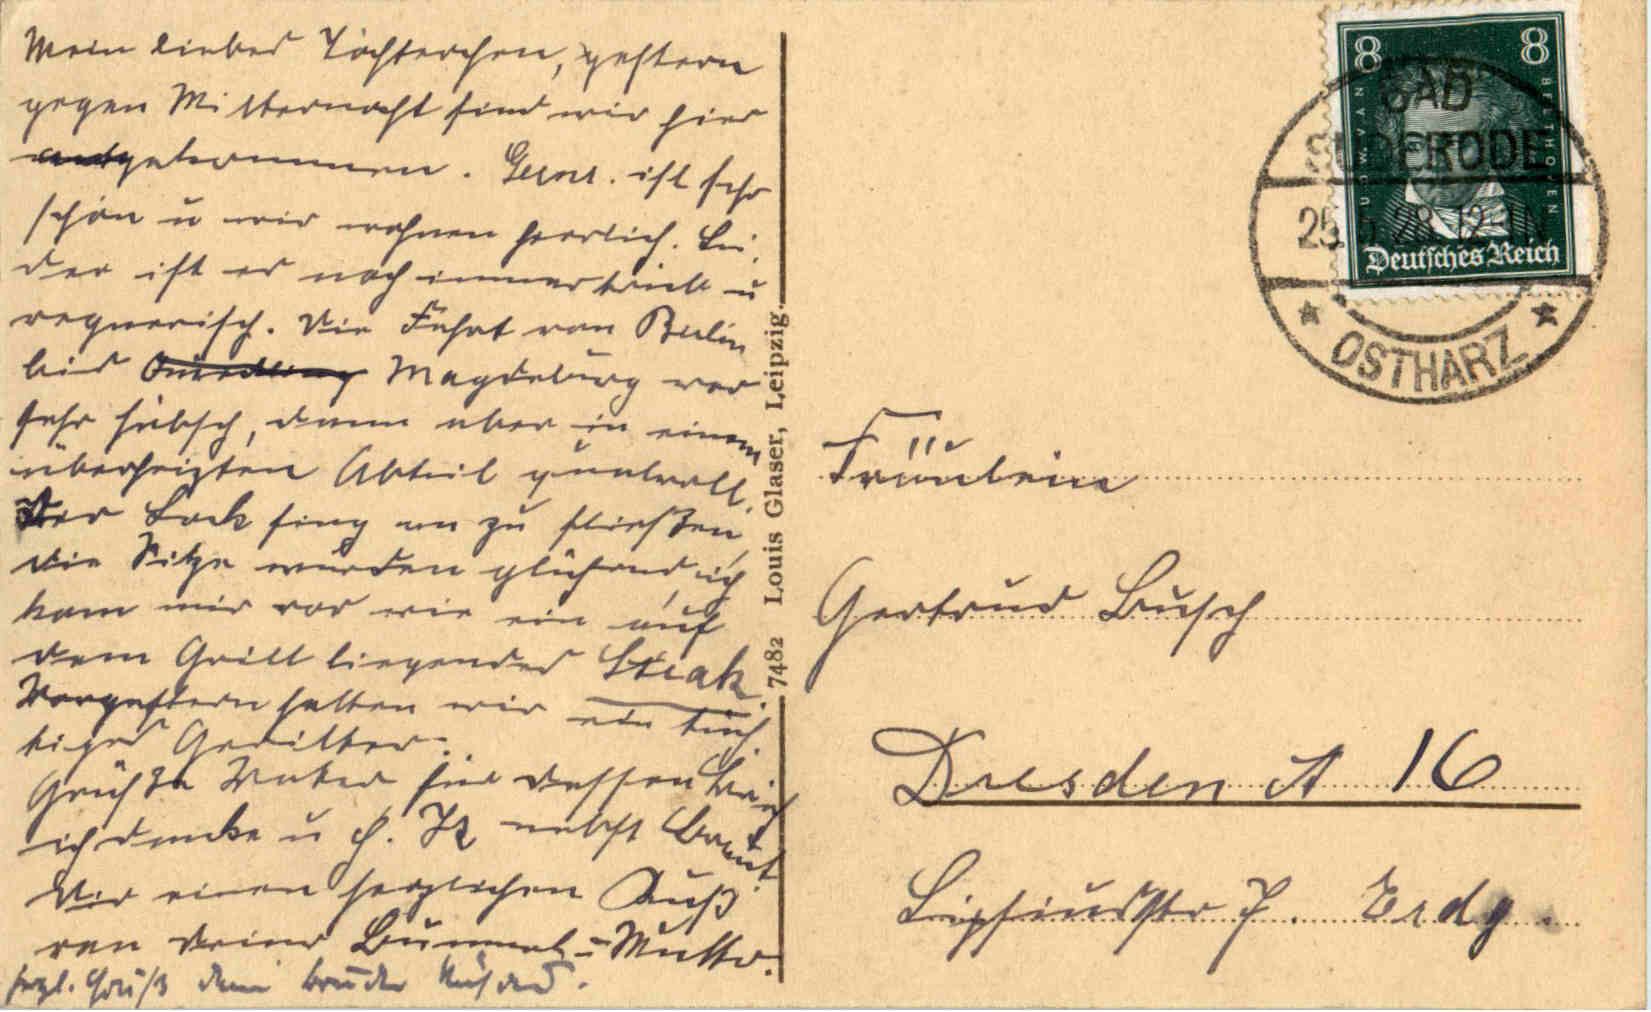 Mein liebes Töchterchen, gestern
gegen Mitternacht sind wir hier
angekommen. Gernr. ist sehr
schön u wir wohnen herrlich. Lei-
der ist es noch immer trüb u
regnerisch. Die Fahrt von Berlin
bis Quedling Magdeburg war
sehr hübsch, dann aber in einem
überheizten Abteil qualvoll.
Der Lack fing an zu fließen,
die Sitze wurden glühend, ich
kam mir vor wie ein auf
dem Grill liegendes Steak.
Vorgestern hatten wir ein tüch-
tiges Gewitter.
Grüße Vater für dessen Brief
ich danke u nebst Braut.
Dir einen herzlichen Kuß
von Deiner Bummel-Mutter.
herzl. Gruß dein Bruder
7482 Louis Glaser, Leipzig.
8 8
LUDW. VAN BEETHOVEN
Deutsches Reich
BAD
SUDERODE
25.5.28.12-1N
* OSTHARZ *
Fräulein
Gertrud Busch
Dresden A 16
Lipsiusstr Erdg.